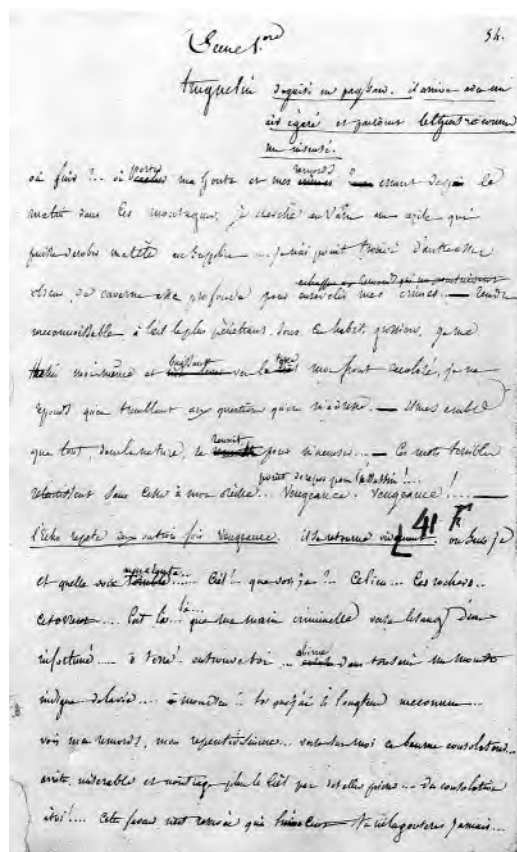 Scene 1ere
54.
Anguelin déguisé en paysan. il arrive avec un
air égaré et parcourt le théâtre comme
un insensé.
où fuir ?.. où porter ma honte et mes remords ? errant depuis le
matin dans les montagnes, je cherche en vain un azile qui
puisse dérober ma tête au supplice je n'ai point trouvé d'antre assez
obscur, de caverne assez profonde pour ensevelir mes crimes... rendu
méconnoissable à l'œil le plus pénétrant, sous ce habit grossier, je me
moi même et baissant vers la terre mon front décoloré, je ne
répond qu'en tremblant aux questions qu'on m'adresse. — il me semble
que tout, dans la nature, se réunit pour m'accuser... — Ces mots terribles
point de repos pour l'assassin !...
retentissent sans cesse à mon oreille... Vengeance. Vengeance !...
l'écho répète Vengeance. il se retourne vivement. où suis je
41
et quelle voix menaçante..... Ciel !.. que vois je ?.. Ce lieu... Ces rochers..
Ce torrent.... C'est là.. là... que ma main criminelle versa le sang d'un
infortuné..... ô terre ! entrouvre toi... abime dans ton sein un monstre
indigne de la vie.... ô mon dieu !.. toi que j'ai si longtems méconnu...
vois mes remords, mon repentir sincère... verse sur moi ce baume consolateur...
arrête, misérable et n'outrage plus le Ciel par de telles prières... Des consolations
à toi !.... Cette faveur n'est réservée qu'à Tu ne la gouteras jamais....